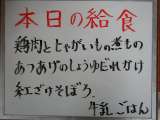 本日の給食
鶏肉とじゃがいもの煮もの
あつあげのしょうゆだれかけ
紅ざけそぼろ
牛乳 ごはん